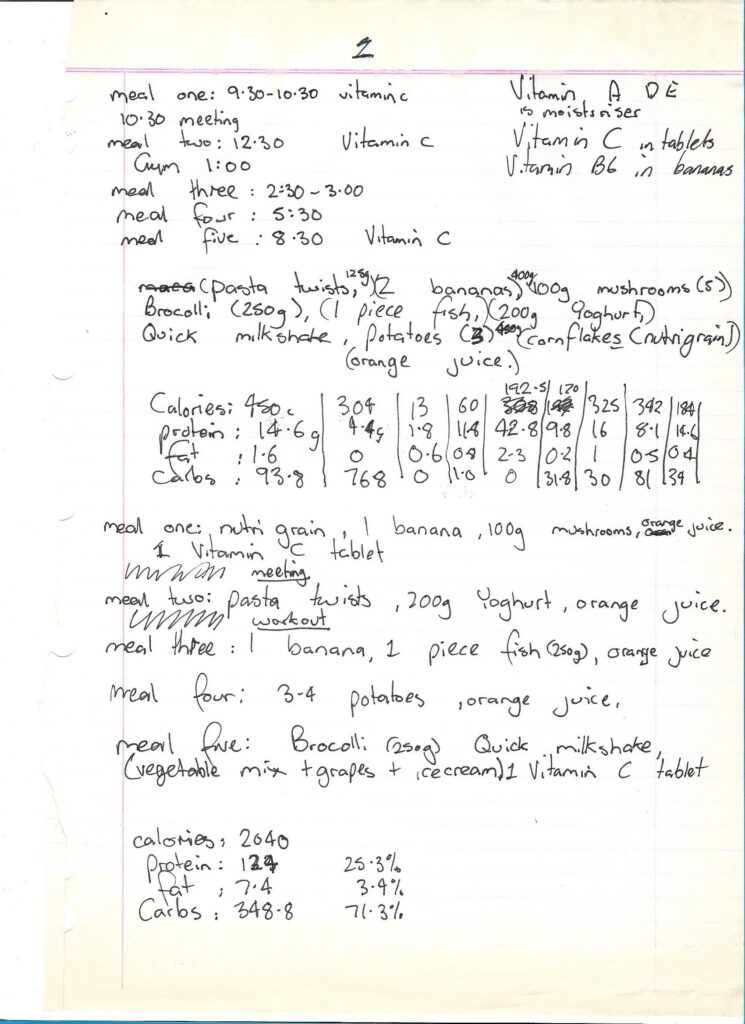 2
meal one: 9.30-10.30 vitamin c
Vitamin A D E
is moisteriser
10.30 meeting
meal two: 12.30 Vitamin c
Vitamin C in tablets
Gym 1:00
Vitamin B6 in bananas
meal three : 2:30 - 3.00
meal four : 5:30
meal five : 8.30 Vitamin C
(pasta twists, 125g)(2 bananas,) 400g 100g mushrooms (5)
Brocolli (250g), (1 piece fish,)(200g Yoghurt)
Quick milkshake, potatoes (3) 400g (cornflakes (nutrigrain))
(orange juice.)
192.5 120
Calories: 450c 304 13 60 325 342 184
protein : 14.6g 4.4g 1.8 11.8 42.8 9.8 16 8.1 14.6
fat : 1.6 0 0.6 0.8 2.3 0.2 1 0.5 0.4
Carbs : 93.8 76.8 0 1.0 0 31.8 30 81 34
meal one: nutri grain, 1 banana, 100g mushrooms, orange juice.
1 Vitamin C tablet
meeting
meal two: pasta twists, 200g Yoghurt, orange juice.
workout
meal three : 1 banana, 1 piece fish (250g), orange juice
meal four: 3-4 potatoes, orange juice,
meal five: Brocolli (250g) Quick milkshake,
(vegetable mix + grapes + icecream) 1 Vitamin C tablet
calories: 2040
Protein: 124 25.3%
fat : 7.4 3.4%
Carbs : 348.8 71.3%